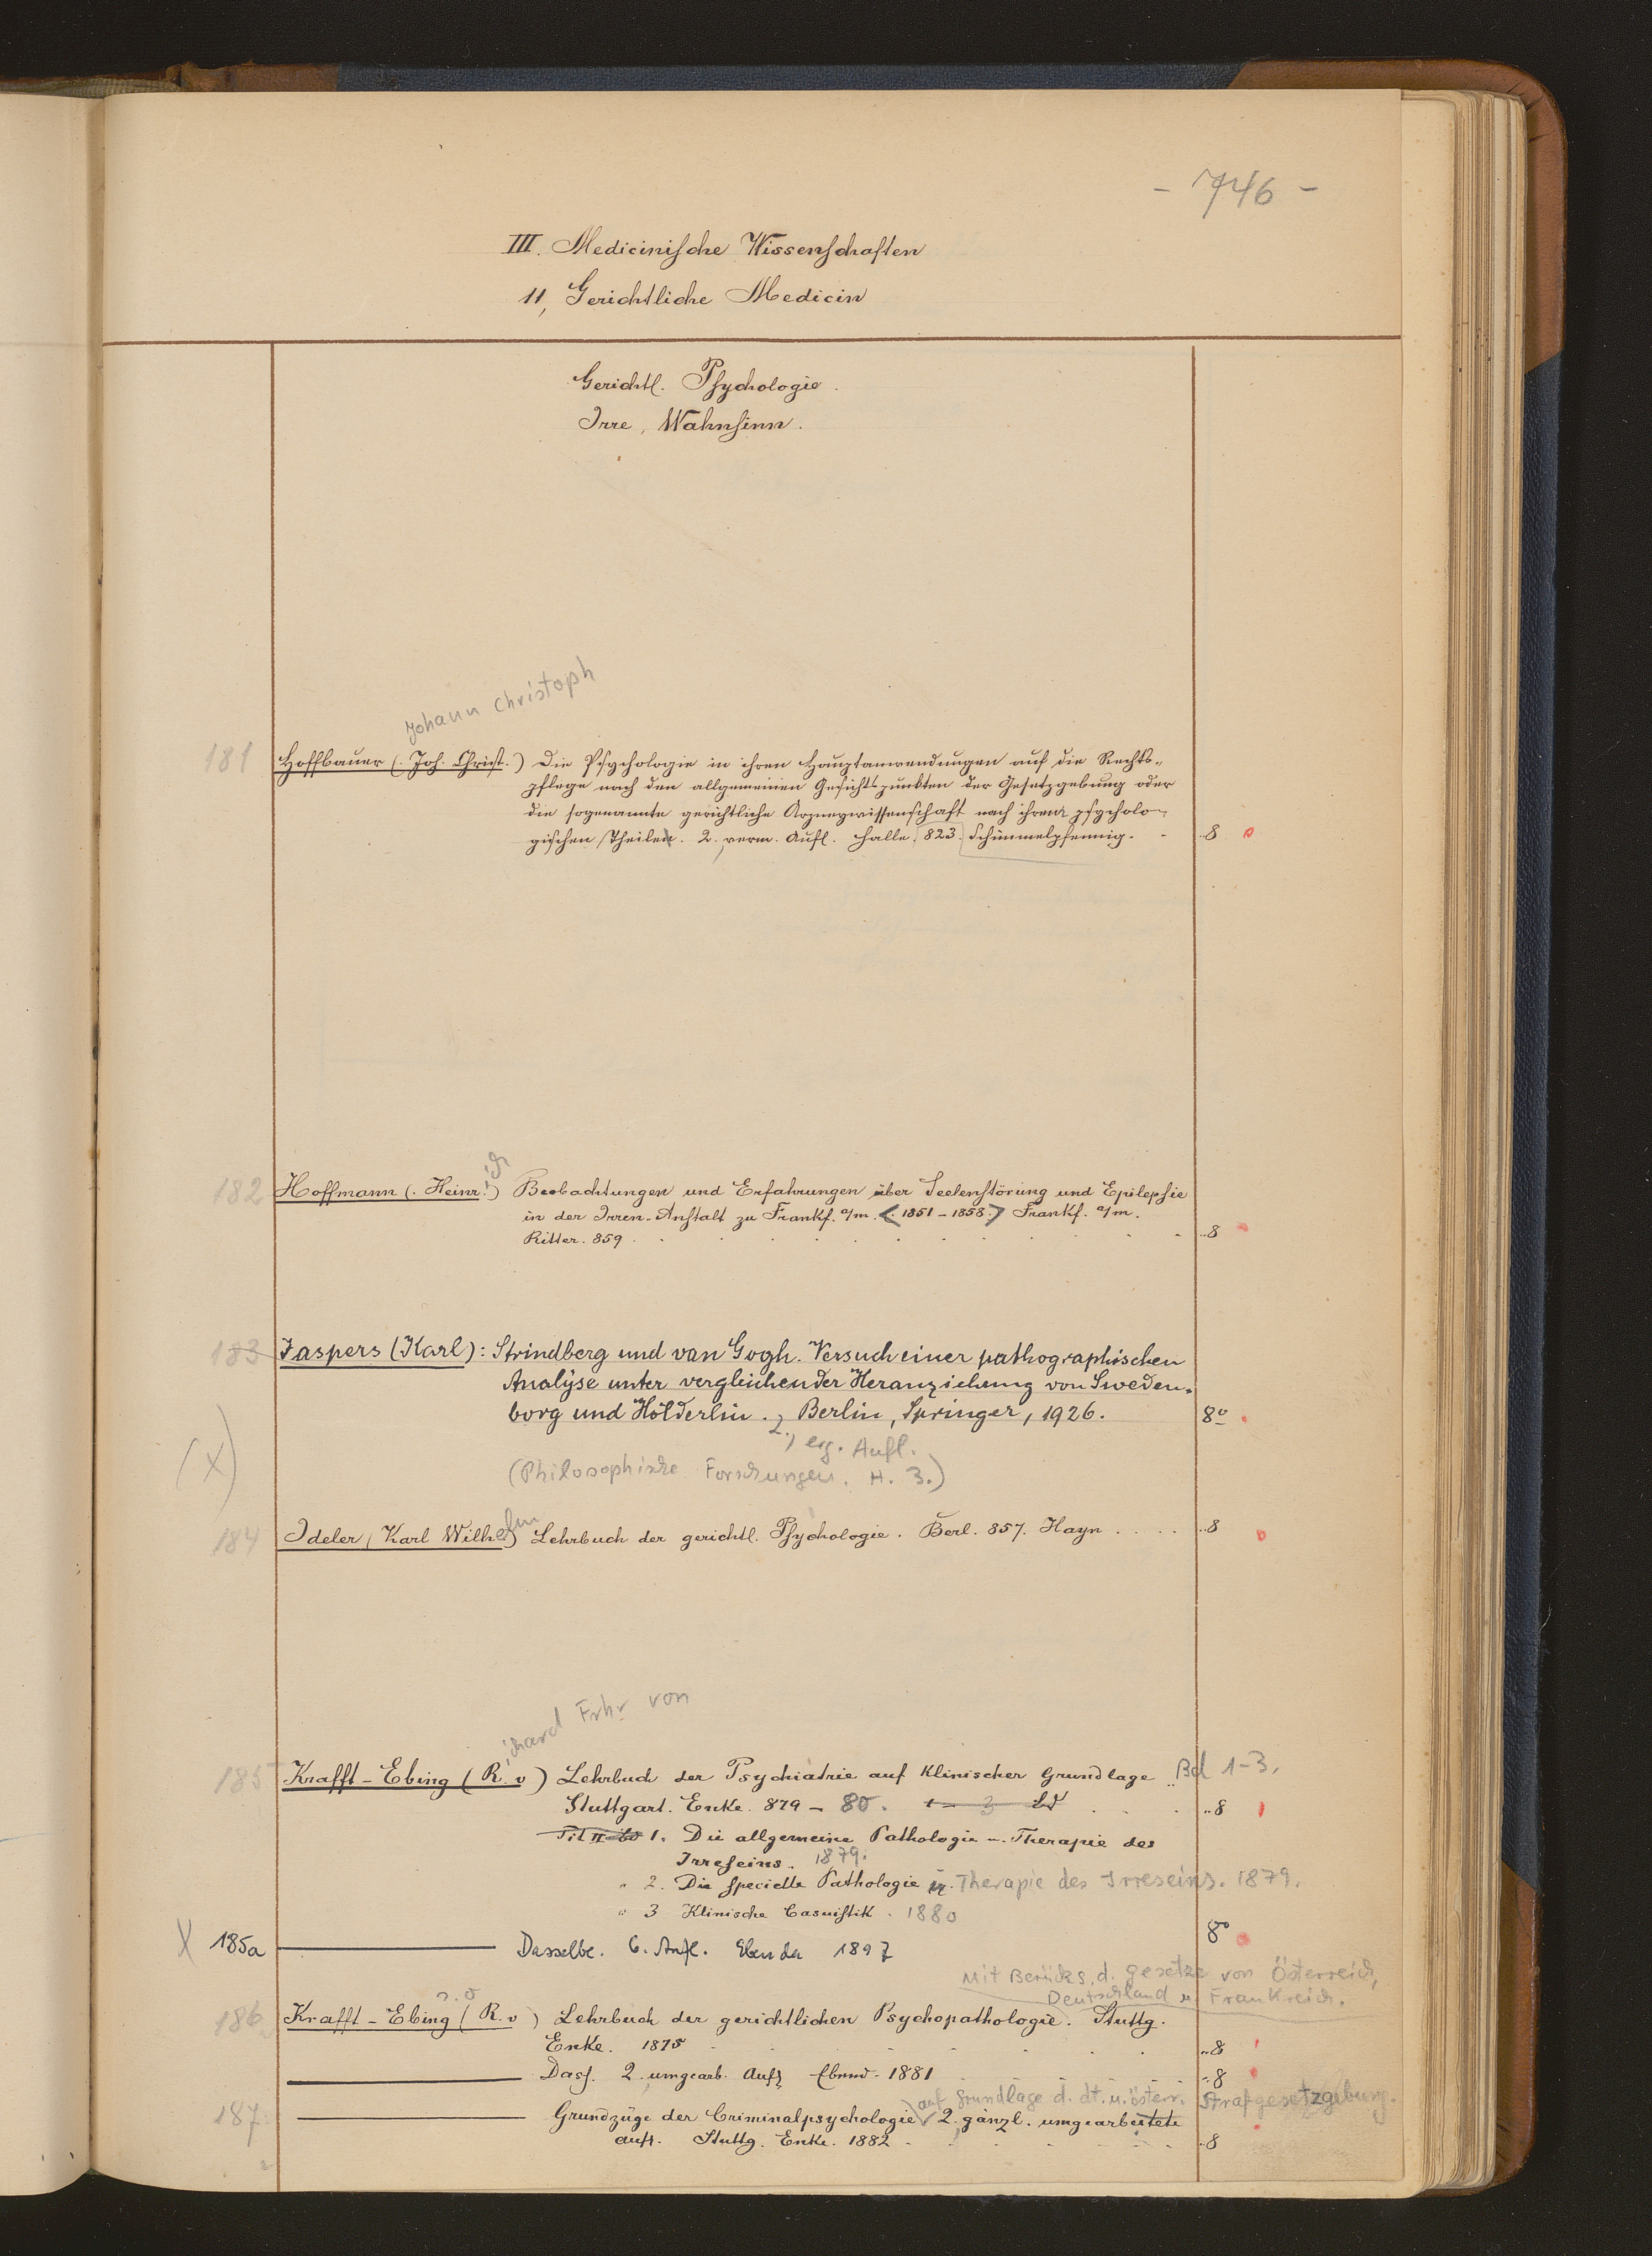 - 746 -
III. Medicinische Wissenschaften
11, Gerichtliche Medicin
Gerichtl. Psychologie.
Irre, Wahnsinn.
Johann Christoph
181 Hoffbauer (. Joh. Christ.) Die Psychologie in ihren Hauptanwendungen auf die Rechts-
pflege nach den allgemeinen Gesichtspunkten der Gesetzgebung oder
die sogenannte gerichtliche Arzneywissenschaft nach ihren psycholo-
gischen Theilen. 2. verm. Aufl. Halle. 823. Schimmelpfennig. - ..8
182 Hoffmann (. Heinr.ich) Beobachtungen und Erfahrungen über Seelenstörung und Epilepsie
in der Irren-Anstalt zu Frankf. a/m. <. 1851-1858.> Frankf. a/m.
Ritter. 859. ..8
183 Jaspers (Karl): Strindberg und van Gogh. Versuch einer pathographischen
Analyse unter vergleichender Heranziehung von Sweden-
borg und Hölderlin. , Berlin, Springer, 1926. 8º
2., erg. Aufl.
(X) (Philosophische Forschungen. H. 3.)
184 Ideler (Karl Wilhelm) Lehrbuch der gerichtl. Psychologie. Berl. 857. Hayn . . . . ..8
ichard Frhr von
185 Krafft-Ebing (R. v) Lehrbuch der Psychiatrie auf klinischer Grundlage .. Bd 1-3.
Stuttgart. Enke. 879 - 80. 1-3 Bd ..8
1. Die allgemeine Pathologie u. Therapie des
Irreseins. 1879.
" 2. Die specielle Pathologie u. Therapie des Irreseins. 1879.
" 3 Klinische Casuistik. 1880
X 185a ——— Dasselbe. 6. Aufl. Ebenda 1897 8º
Mit Berücks. d. Gesetze von Österreich,
Deutschland u. Frankreich.
186 Krafft-Ebing (R. v) Lehrbuch der gerichtlichen Psychopathologie. Stuttg.
Enke. 1875 ..8
——— Dass. 2. umgearb. Aufl. Ebend. 1881 ..8
auf Grundlage d. dt. u. österr. Strafgesetzgebung.
187 ——— Grundzüge der Criminalpsychologie 2. gänzl. umgearbeitete
Aufl. Stuttg. Enke. 1882 ..8